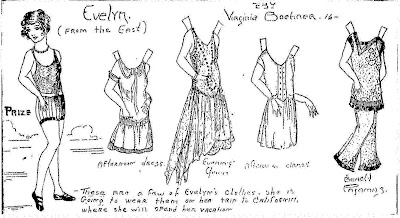 Evelyn.
(FROM THE EAST)
BY
Virginia Boehner. 16-
PRIZE
Afternoon dress.
Evening Gown
Afternoon dress
Beach Pajamas.
These are a few of Evelyn's clothes. She is
Going to wear them on her trip to California,
where she will spend her vacation